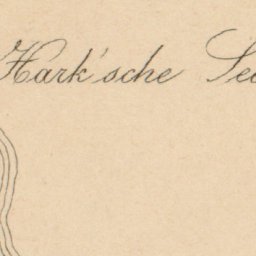 Hark'sche See